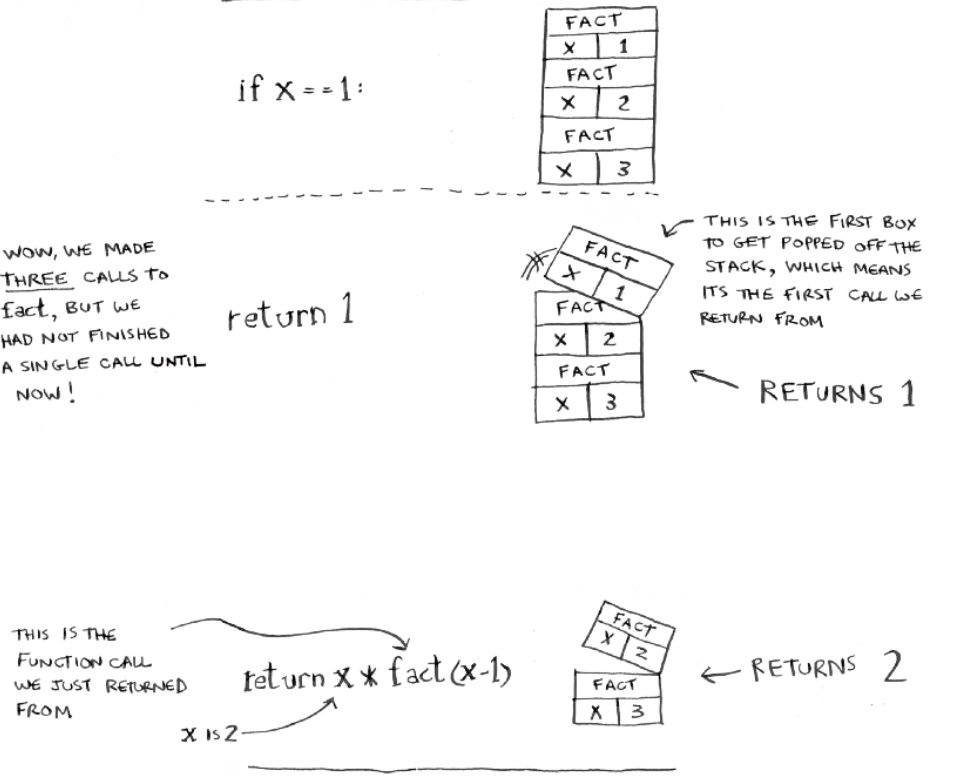 if x == 1:
FACT
X 1
FACT
X 2
FACT
X 3
WOW, WE MADE
THREE CALLS TO
fact, BUT WE
HAD NOT FINISHED
A SINGLE CALL UNTIL
NOW!
return 1
FACT
X 1
FACT
X 2
FACT
X 3
THIS IS THE FIRST BOX
TO GET POPPED OFF THE
STACK, WHICH MEANS
ITS THE FIRST CALL WE
RETURN FROM
RETURNS 1
THIS IS THE
FUNCTION CALL
WE JUST RETURNED
FROM
return x * fact(x-1)
X IS 2
FACT
X 2
FACT
X 3
RETURNS 2